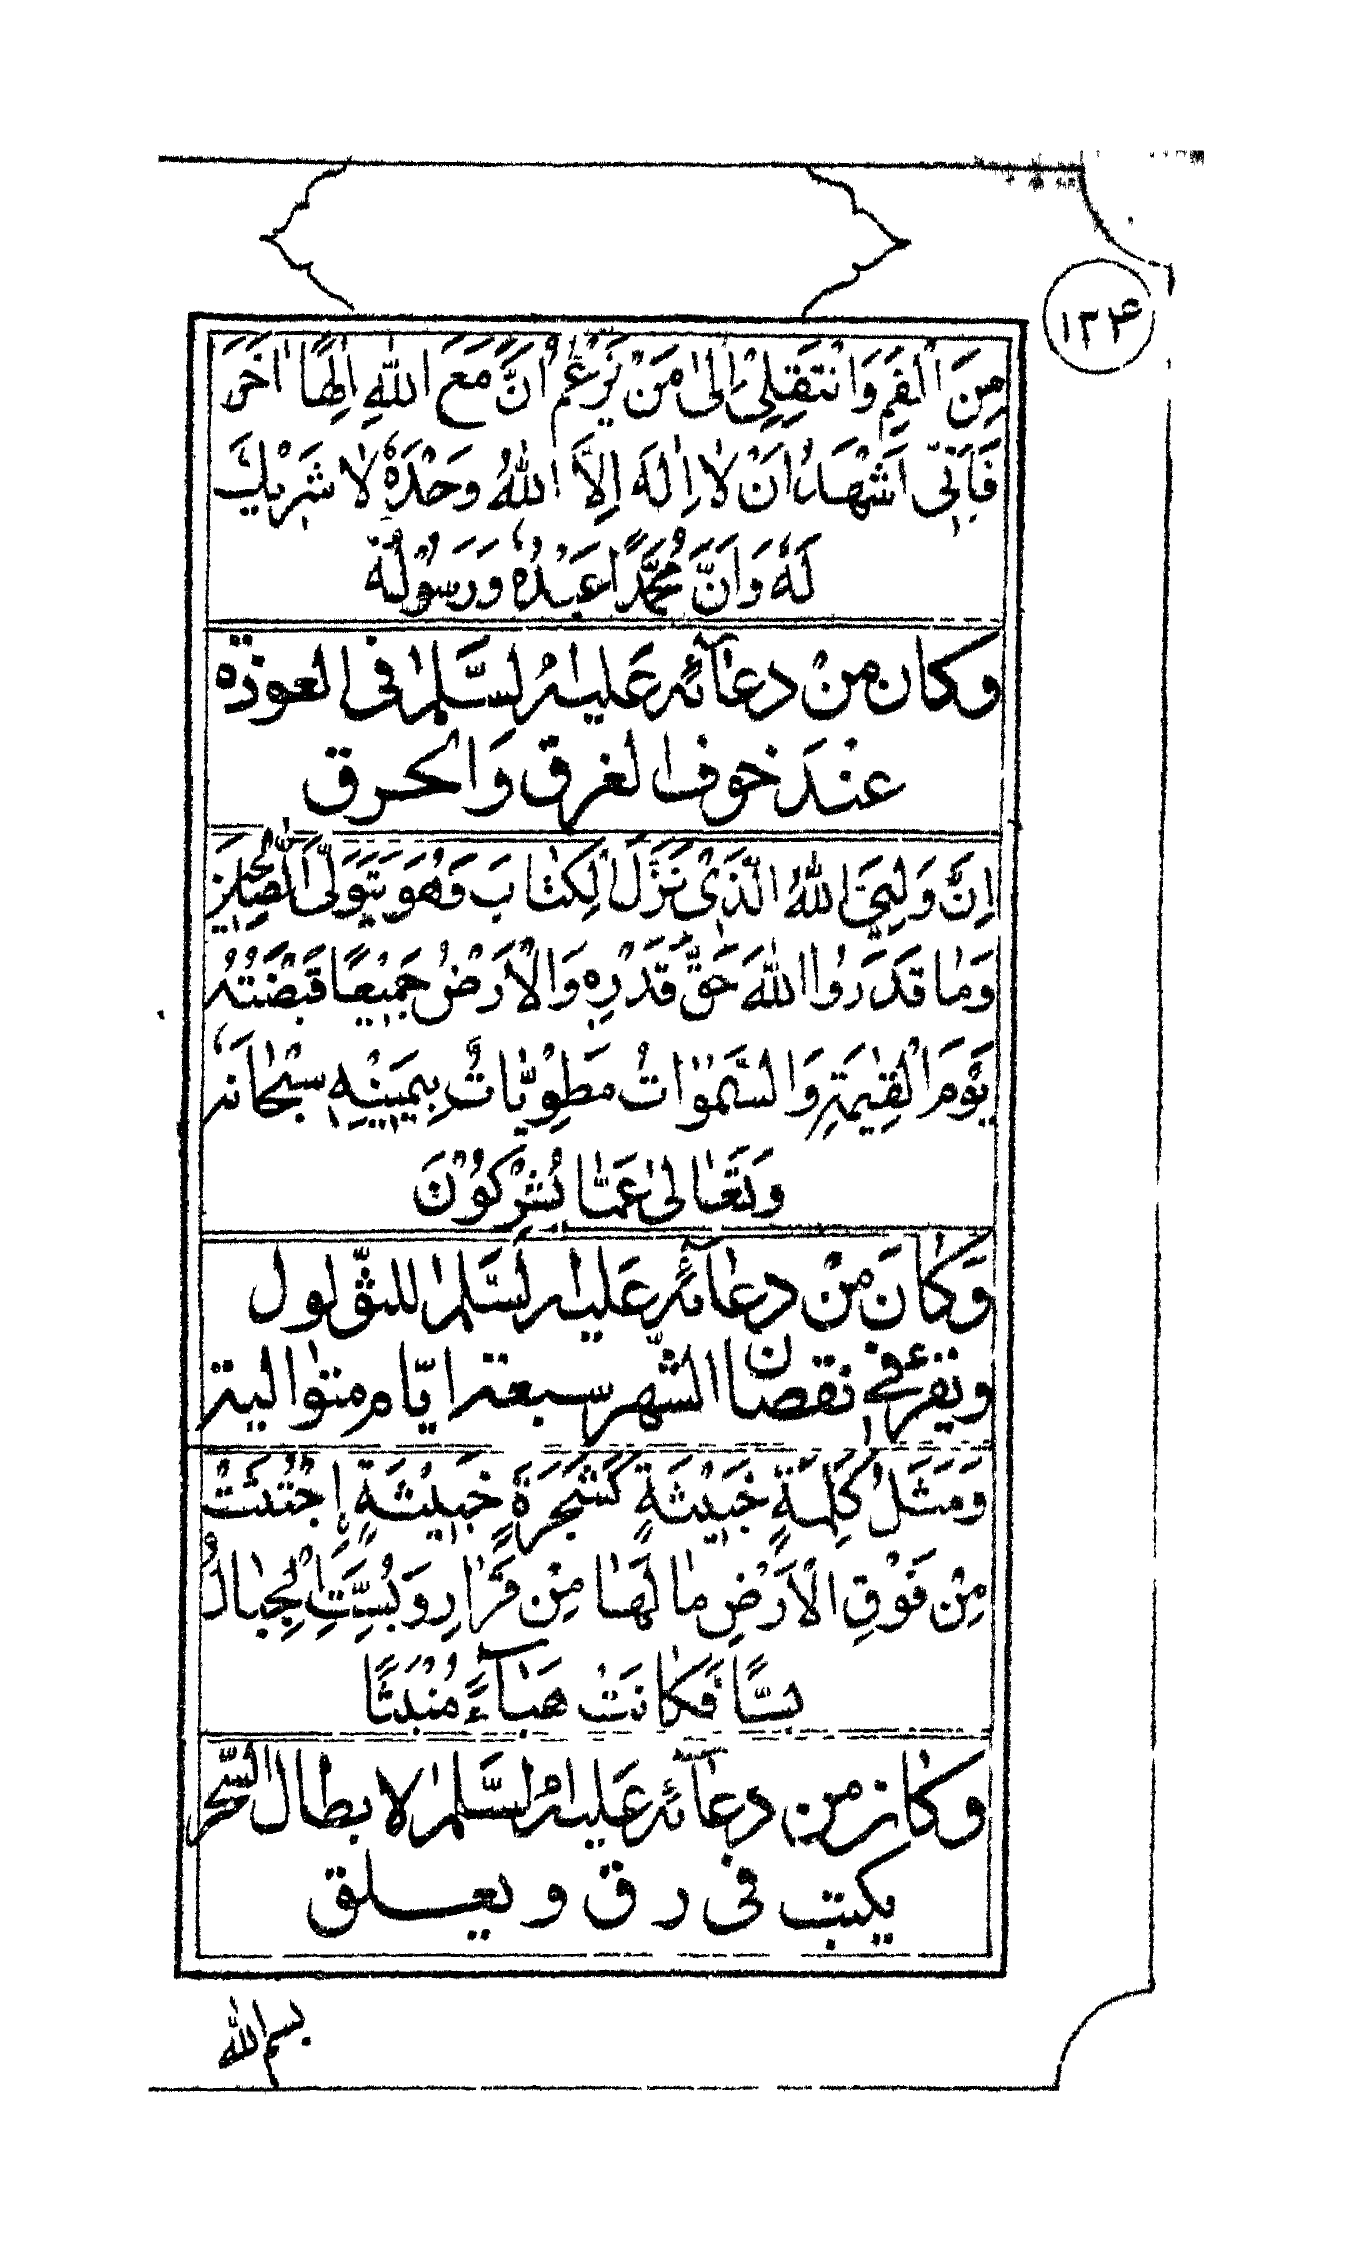 ١٢٤
مِنَ الْفَمِ وَانْتَقِلِىْ اِلىٰ مَنْ يَزْعُمُ اَنَّ مَعَ اللهِ اِلٰهًا اٰخَرَ
فَاِنّى اَشْهَدُ اَنْ لاٰ اِلٰهَ اِلاَّ اللهُ وَحْدَهُ لاٰ شَرِيْكَ
لَهُ وَاَنَّ مُحَمَّدًا عَبْدُهُ وَرَسُوْلُهُ
وكان من دعآئه عليه السلام فى العوذة
عند خوف الغرق والحرق
اِنَّ وَلِيِّىَ اللهُ الَّذِىْ نَزَّلَ الْكِتٰابَ وَهُوَ يَتَوَلَّى الصّٰالِحِيْنَ
وَمٰا قَدَرُوا اللهَ حَقَّ قَدْرِهٖ وَالْاَرْضُ جَمِيْعًا قَبْضَتُهُ
يَوْمَ الْقِيٰمَةِ وَالسَّمٰوٰاتُ مَطْوِيّٰاتٌ بِيَمِيْنِهٖ سُبْحٰانَهُ
وَتَعٰالىٰ عَمّٰا يُشْرِكُوْنَ
وكان من دعآئه عليه السلام للثؤلول
ويقرء فى نقصان الشهر سبعة ايّام متوالية
وَمَثَلُ كَلِمَةٍ خَبِيْثَةٍ كَشَجَرَةٍ خَبِيْثَةٍ اِجْتُثَّتْ
مِنْ فَوْقِ الْاَرْضِ مٰا لَهٰا مِنْ قَرٰارٍ وَبُسَّتِ الْجِبٰالُ
بَسًّا فَكٰانَتْ هَبٰآءً مُنْبَثًّا
وكان من دعآئه عليه السلام لابطال السحر
يكتب فى رق ويعلق
بسم الله